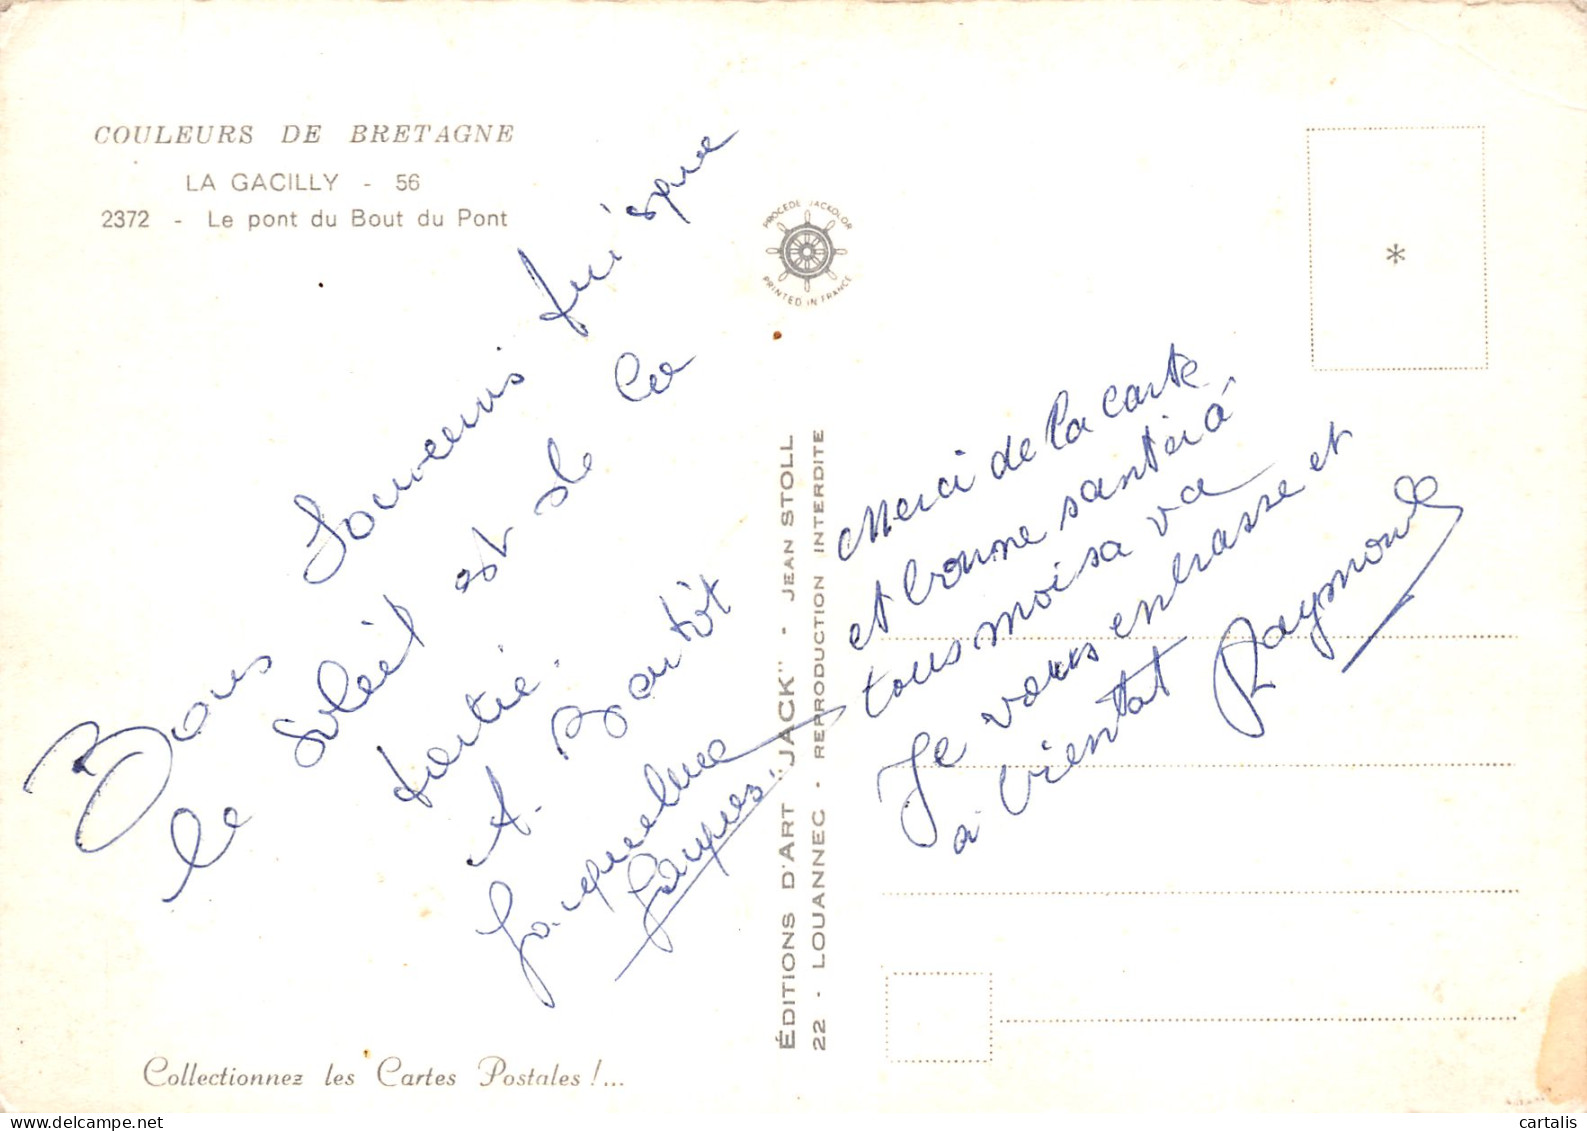 COULEURS DE BRETAGNE
LA GACILLY - 56
2372 - Le pont du Bout du Pont
PROCEDE JACKOLOR
PRINTED IN FRANCE
*
Bons Souvenirs puisque
le Soleil est de la
partie.
A Bientôt
Jacqueline
Jacques
ÉDITIONS D'ART "JACK" - JEAN STOLL
22 - LOUANNEC - REPRODUCTION INTERDITE
Merci de la carte
et bonne santé à
tous moi sa va
Je vous enbrasse et
a bientat Raymonde
Collectionnez les Cartes Postales !...
cartalis